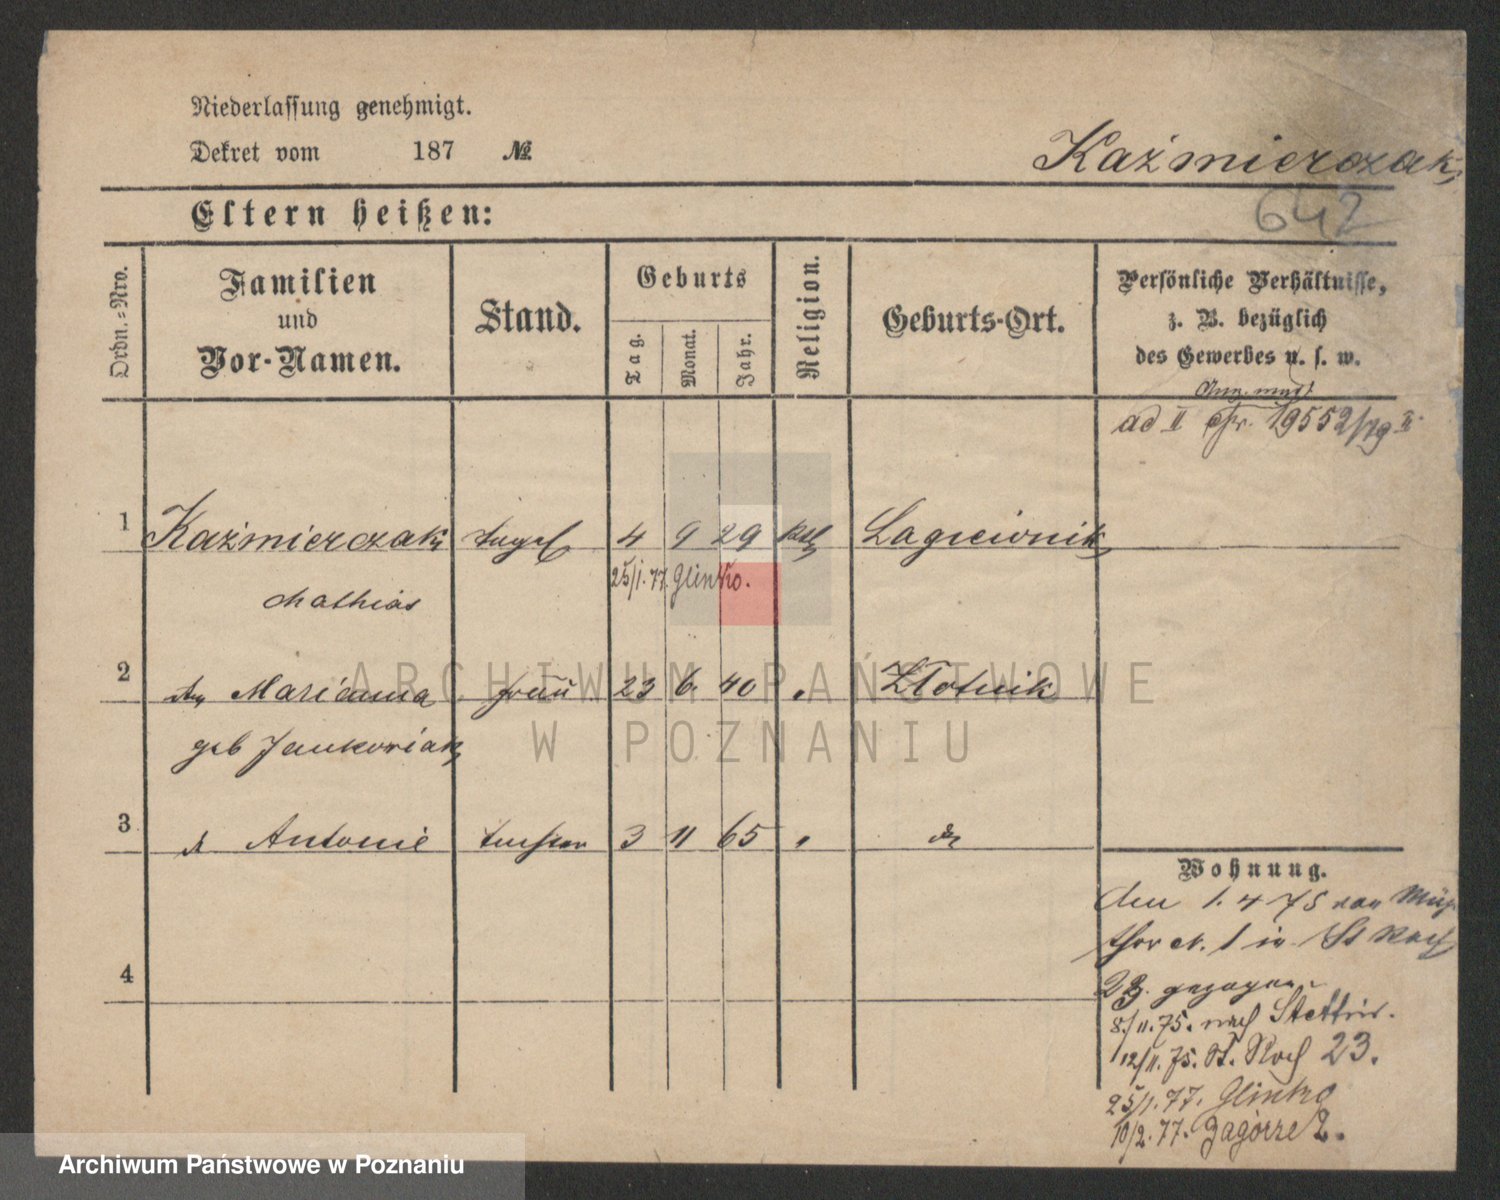 Niederlassung genehmigt.
Dekret vom 187 №
Kaźmierczak
642
Eltern heißen:
Ordn.=Nro.
Familien
und
Vor-Namen.
Stand.
Geburts
Tag.
Monat.
Jahr.
Religion.
Geburts-Ort.
Persönliche Verhältnisse,
z. B. bezüglich
des Gewerbes u. s. w.
ad II 19552/79 II
1 Kaźmierczak 4 9 29 kth Lagiewnik
25/1. 77. Glinko.
Mathias
2 Marianna Frau 23 6. 40 " Złotnik
geb Jankowiak
3 Antonie 3 11 65 "
4
Wohnung.
Den 1. 4 75 von
thor N. 1 in St Roch
23. gezogen
8/11. 75. nach Stettin.
12/11. 75. St. Roch 23.
25/1. 77. Glinko
10/2. 77. Zagórze 2.
ARCHIWUM PAŃSTWOWE
W POZNANIU
Archiwum Państwowe w Poznaniu